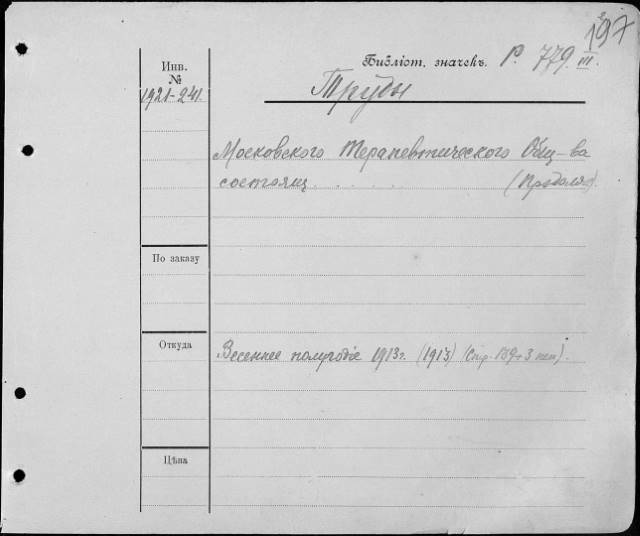 197
Библіот. значекъ. Р. 779. III.
Инв.
№
1921-241.
Труды
Московского Терапевтического Общ-ва
состоящ. . . . . (Продолж).
По заказу
Откуда
Весеннее полугодіе 1913 г. (1913) (Стр. 139+3 нен).
Цѣна